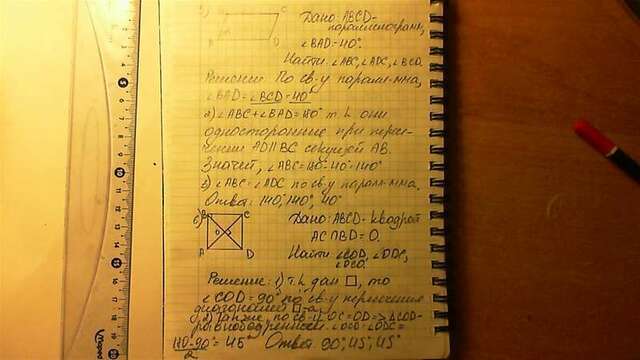 Дано: ABCD-
параллелограмм,
∠BAD=40°.
Найти ∠ABC, ∠ADC, ∠BCD.
Решение По св-у парал-мма,
∠BAD=∠BCD=40°
2) ∠ABC+∠BAD=180° т.к они
односторонние при пересе-
чении AD||BC секущей AB.
Значит, ∠ABC=180°-40°=140°
3) ∠ABC=∠ADC по св-у парал-мма.
Ответ: 140°, 140°, 40°
б) B C
O
A D
Дано: ABCD-квадрат
AC∩BD=O.
Найти: ∠COD, ∠ODC,
∠DCO.
Решение: 1) т.к дан □, то
∠COD=90° по св-у пересечения
диагоналей □-а.
2) Также, по св-у OC=OD=>△COD-
равнобедренный ∠OCD=∠ODC=
180-90°/2=45° Ответ 90°, 45°, 45°